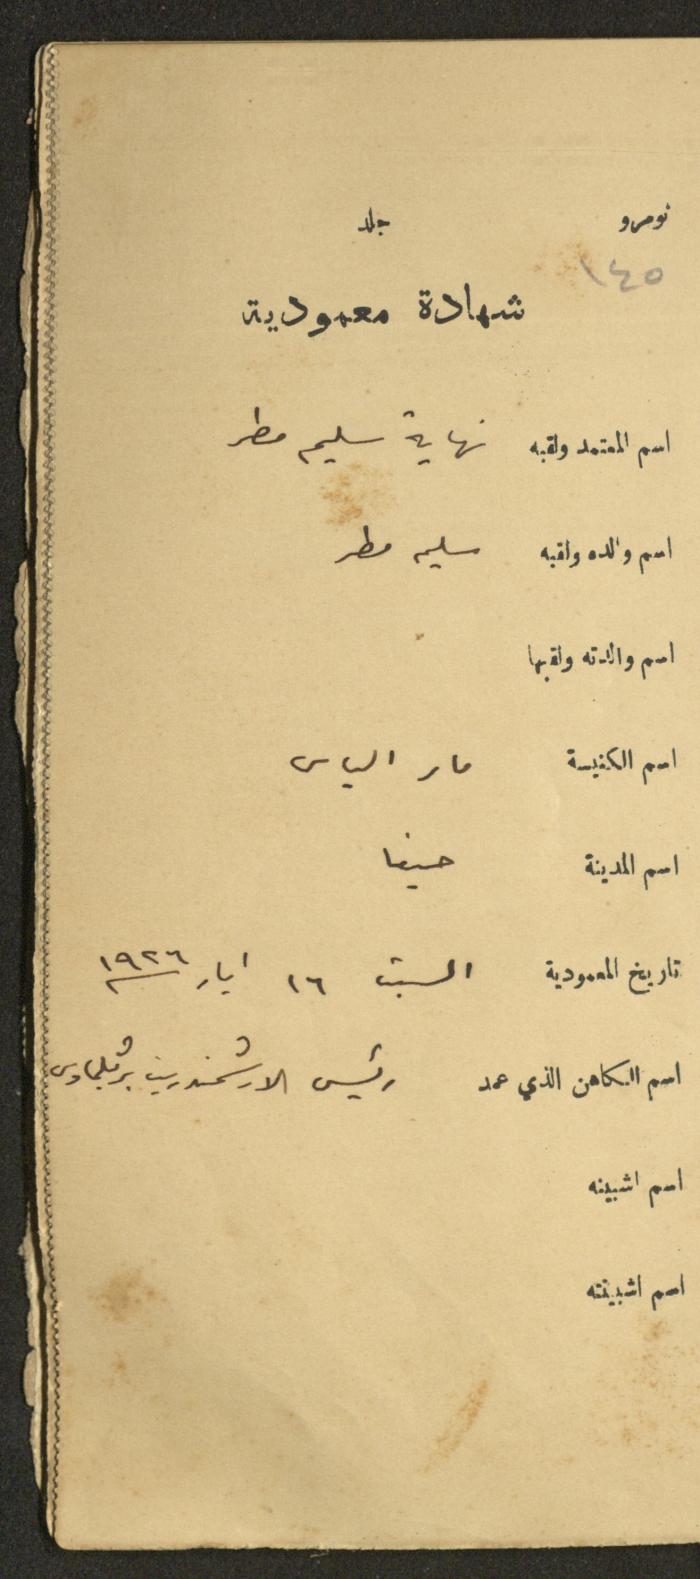 نومرو جلد
١٤٥
شهادة معمودية
اسم المعتمد ولقبه نهاية سليم مطر
اسم والده ولقبه سليم مطر
اسم والدته ولقبها
اسم الكنيسة مار الياس
اسم المدينة حيفا
تاريخ المعمودية السبت ١٦ ايار ١٩٢٦
اسم الكاهن الذي عمد رئيس الارشمندريت
اسم اشبينه
اسم اشبينته